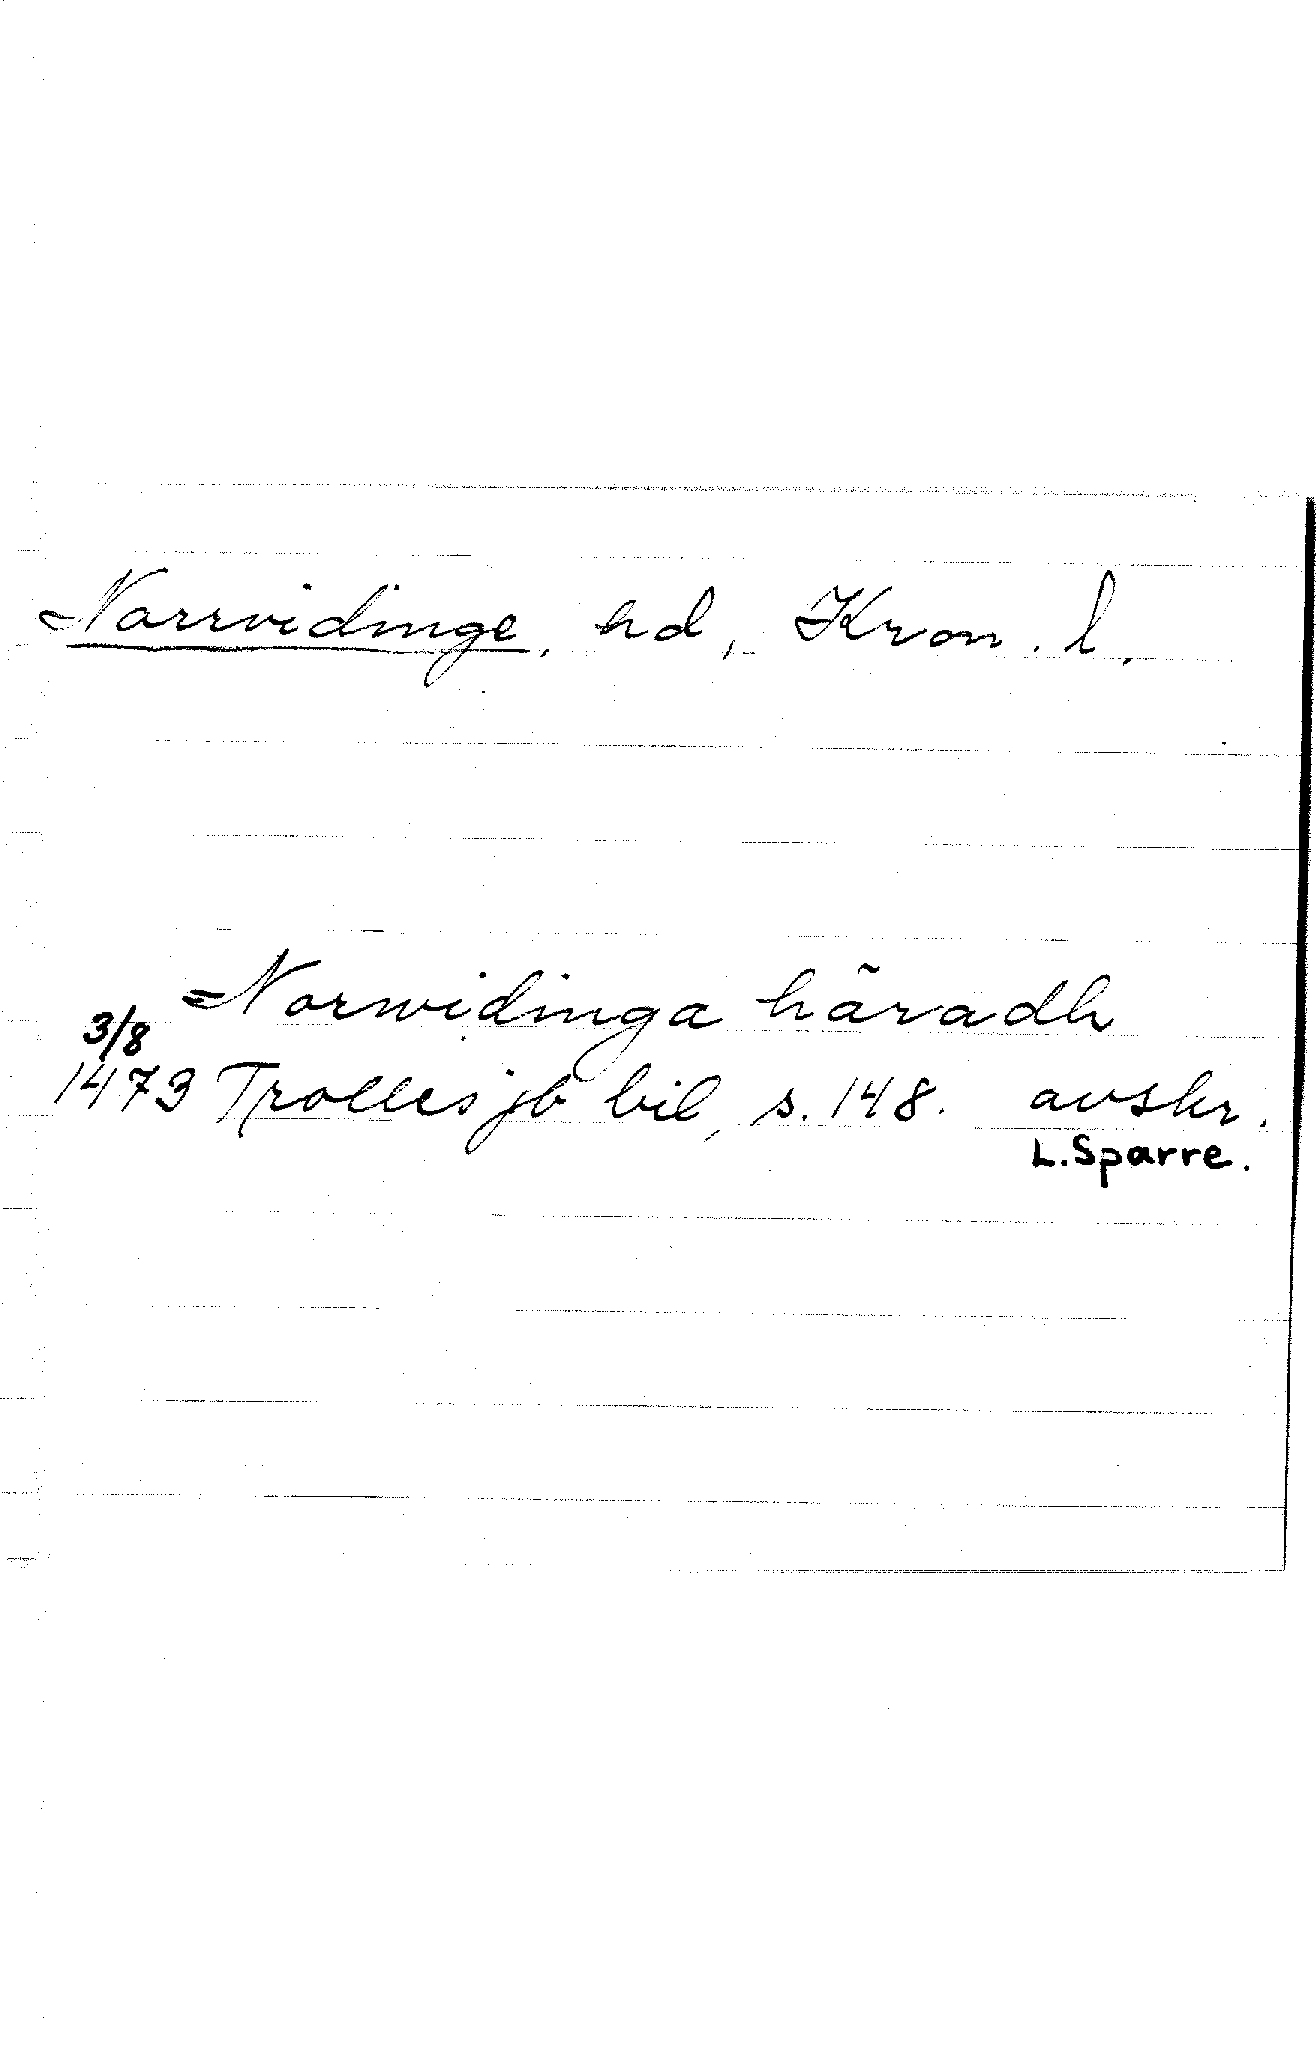 Norrvidinge, hd, Kron. l.
Norwidinga häradh
3/8
1473 Trolles jb bil, s. 148. avskr.
L. Sparre.